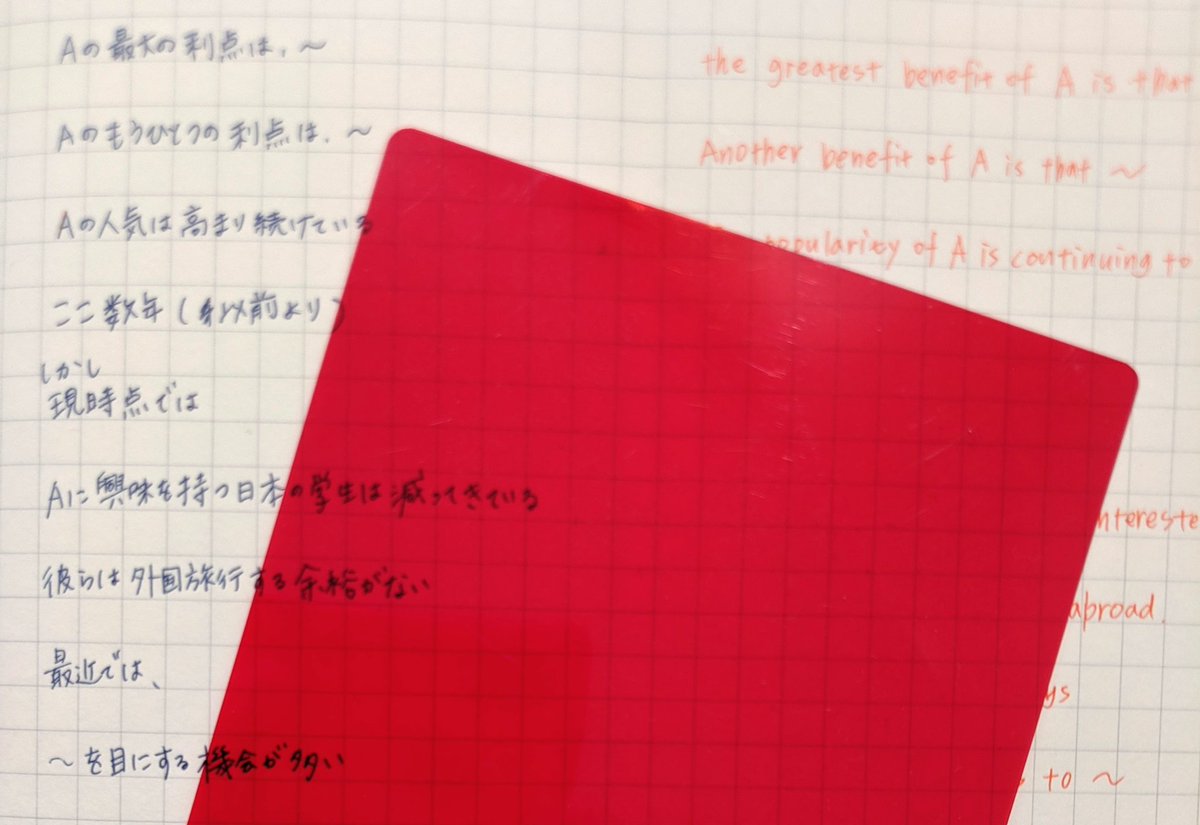 Aの最大の利点は、〜
the greatest benefit of A is that
Aのもうひとつの利点は、〜
Another benefit of A is that 〜
Aの人気は高まり続けている
popularity of A is continuing to
ここ数年(以前より)
しかし
現時点では
Aに興味を持つ日本の学生は減ってきている
intereste
彼らは外国旅行する余裕がない
abroad.
最近では、
ys
〜を目にする機会が多い
to 〜